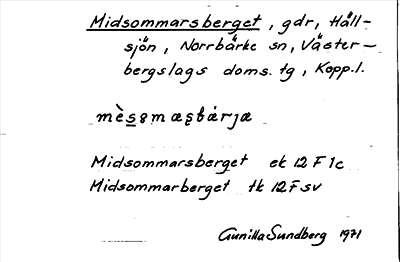 Midsommarsberget, gdr, Häll-
sjön, Norrbärke sn, Väster-
bergslags doms. tg, Kopp. l.
Midsommarsberget ek 12 F 1c
Midsommarberget tk 12 F sv
Gunilla Sundberg 1971